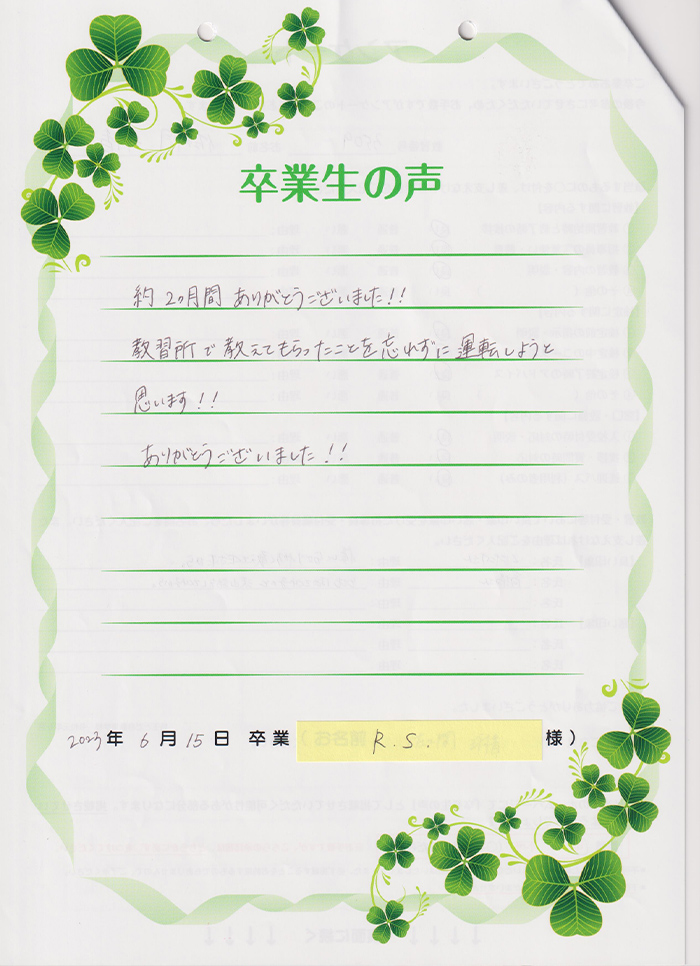 卒業生の声
約2ヶ月間ありがとうございました!!
教習所で教えてもらったことを忘れずに運転しようと
思います!!
ありがとうございました!!
2023年 6月 15日 卒業 R.S. 様)